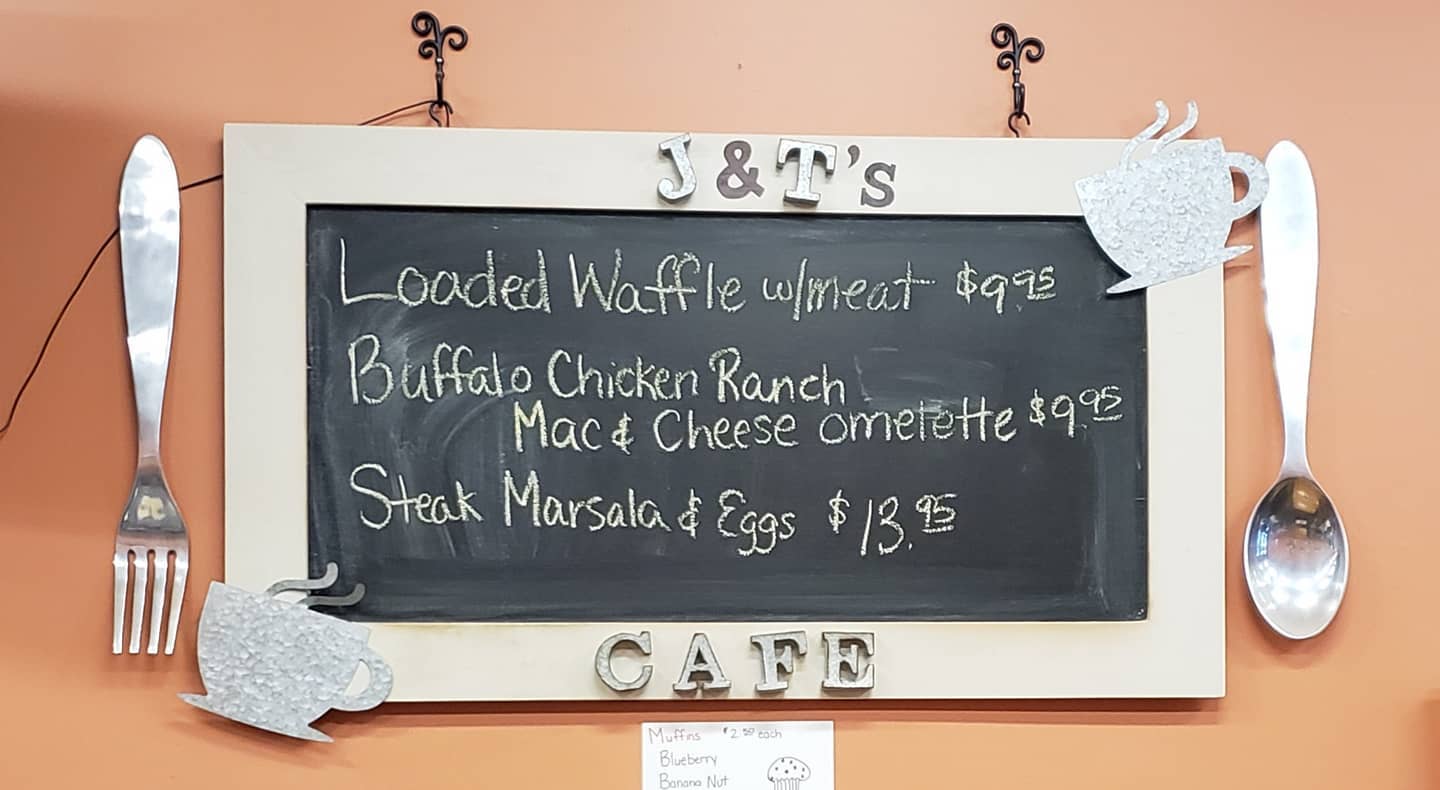 J&T's
Loaded Waffle w/meat $9.95
Buffalo Chicken Ranch
Mac & Cheese omelette $9.95
Steak Marsala & Eggs $13.95
CAFE
Muffins $2.50 each
Blueberry
Banana Nut